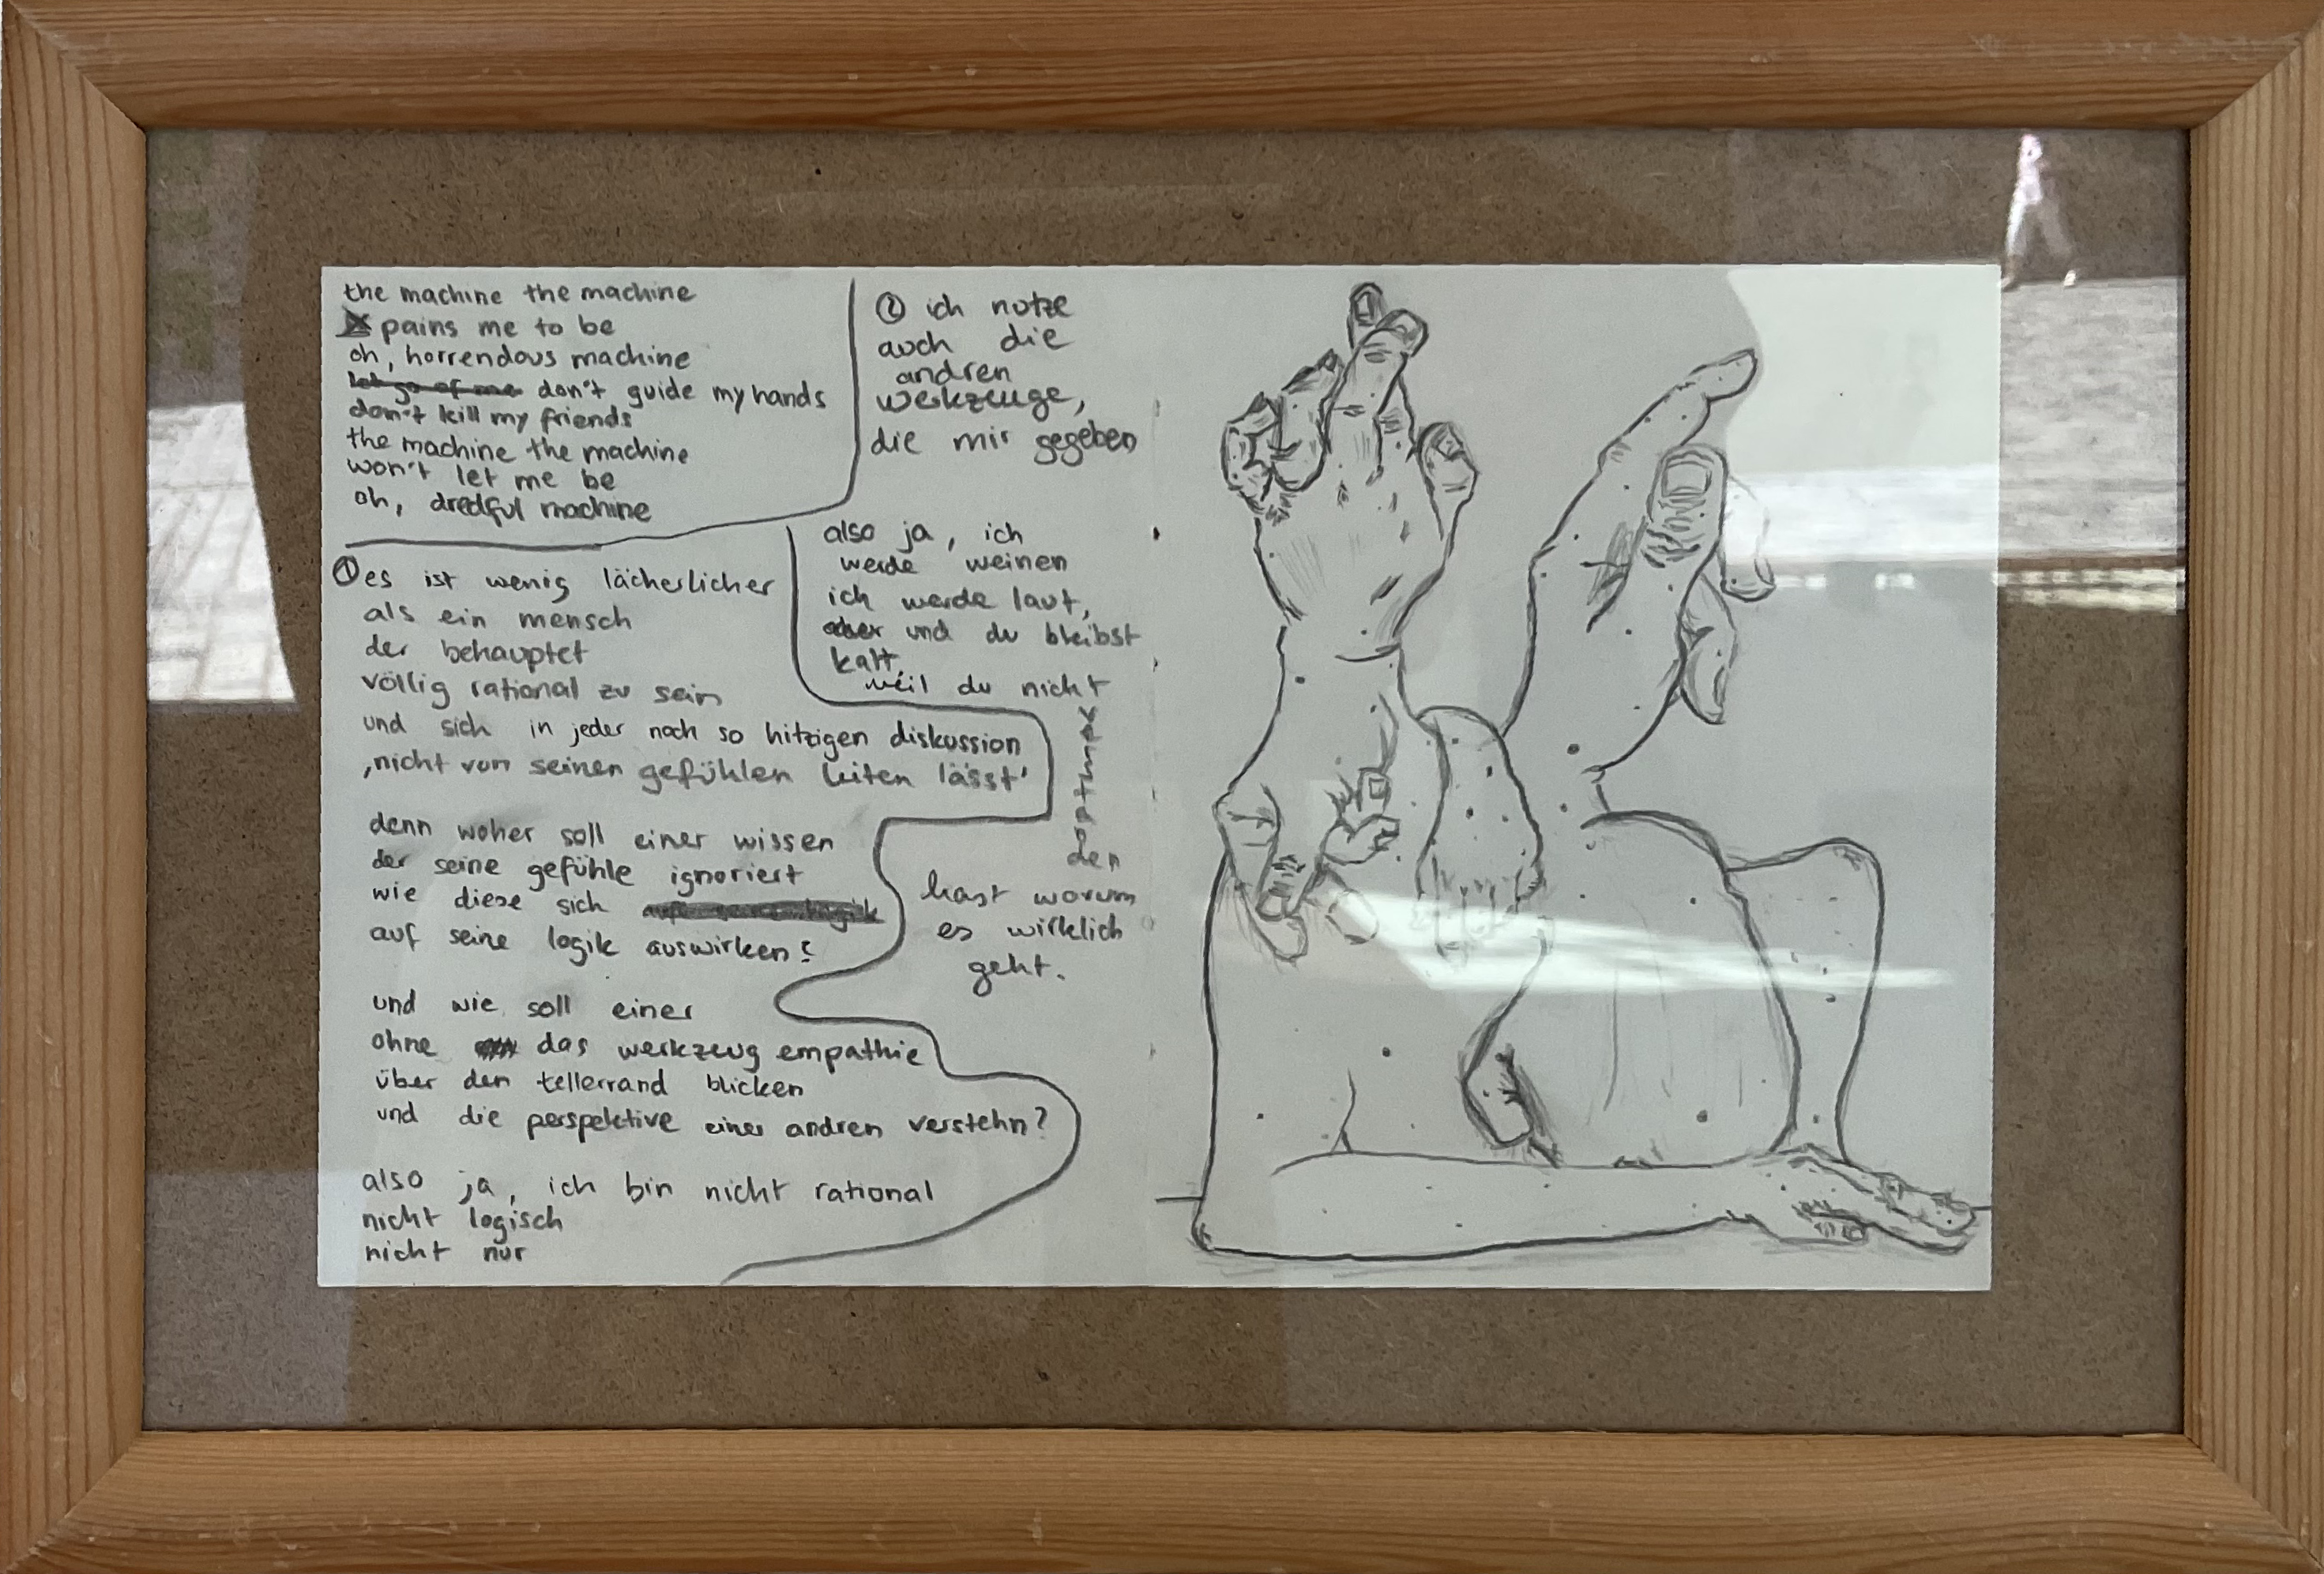 the machine the machine
pains me to be
oh, horrendous machine
let go of me don't guide my hands
don't kill my friends
the machine the machine
won't let me be
oh, dredful machine
① es ist wenig lächerlicher
als ein mensch
der behauptet
völlig rational zu sein
und sich in jeder noch so hitzigen diskussion
‚nicht von seinen gefühlen leiten lässt'
denn woher soll einer wissen
der seine gefühle ignoriert
wie diese sich auf seine logik
auf seine logik auswirken?
und wie soll einer
ohne das werkzeug empathie
über den tellerrand blicken
und die perspektive einer andren verstehn?
also ja, ich bin nicht rational
nicht logisch
nicht nur
② ich nutze
auch die
andren
werkzeuge,
die mir gegeben
also ja, ich
werde weinen
ich werde laut,
aber und du bleibst
kalt,
weil du nicht
verstan
den
hast worum
es wirklich
geht.